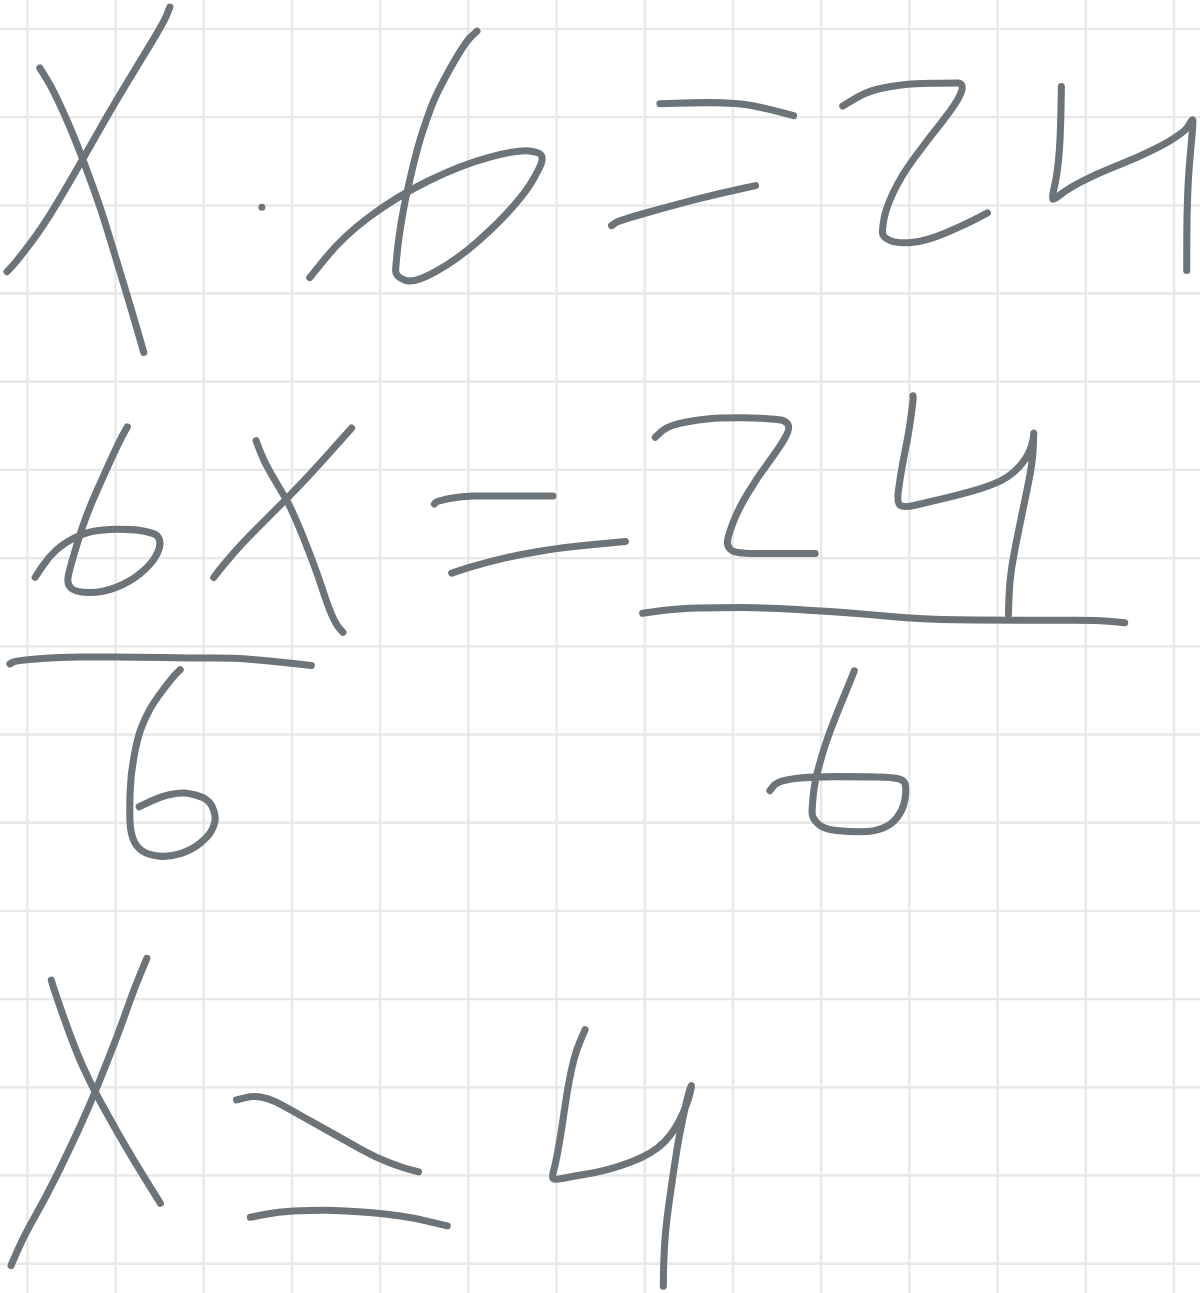 X · 6 = 24
6X/6 = 24/6
X = 4